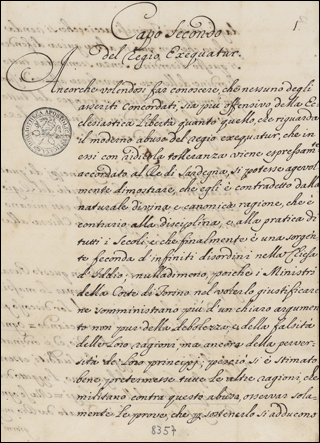 1
Capo Secondo
Del Regio Exequatur.
Ancorche volendosi far conoscere, che nessuno degli
asseriti Concordati, sia più offensivo della Ec-
clesiastica Libertà quanto quello, che riguarda
il moderno abuso del regio exequatur, che in
essi con ardita tolleranza viene espressamte
accordato al Re di Sardegna, si potesse agevol-
mente dimostrare, che egli è contradetto dalla
naturale divina, e canonica ragione, che è
contrario alla disciplina, e alla pratica di
tutti i Secoli, e che finalmente è una sorgen-
te feconda d'infiniti disordini nella Chiesa
d'Iddio, nulladimeno, poiche i Ministri
della Corte di Torino nel volerlo giustificare
ne somministrano più d'un chiaro argumen-
to non pur della debolezza, e della falsità
delle Loro ragioni, ma ancora della perver-
sità de' Loro principj; perciò si è stimato
bene, pretermesse tutte le altre ragioni, che
militano contra questo abuso, osservar sola-
mente Le prove, che per sostenerlo si adducono
8357